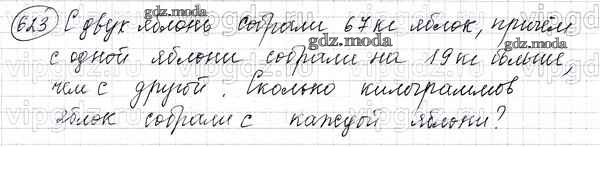 623 С двух яблонь собрали 67 кг яблок, причём
с одной яблони собрали на 19 кг больше,
чем с другой. Сколько килограммов
яблок собрали с каждой яблони?
gdz.moda
gdz.moda
gdz.moda